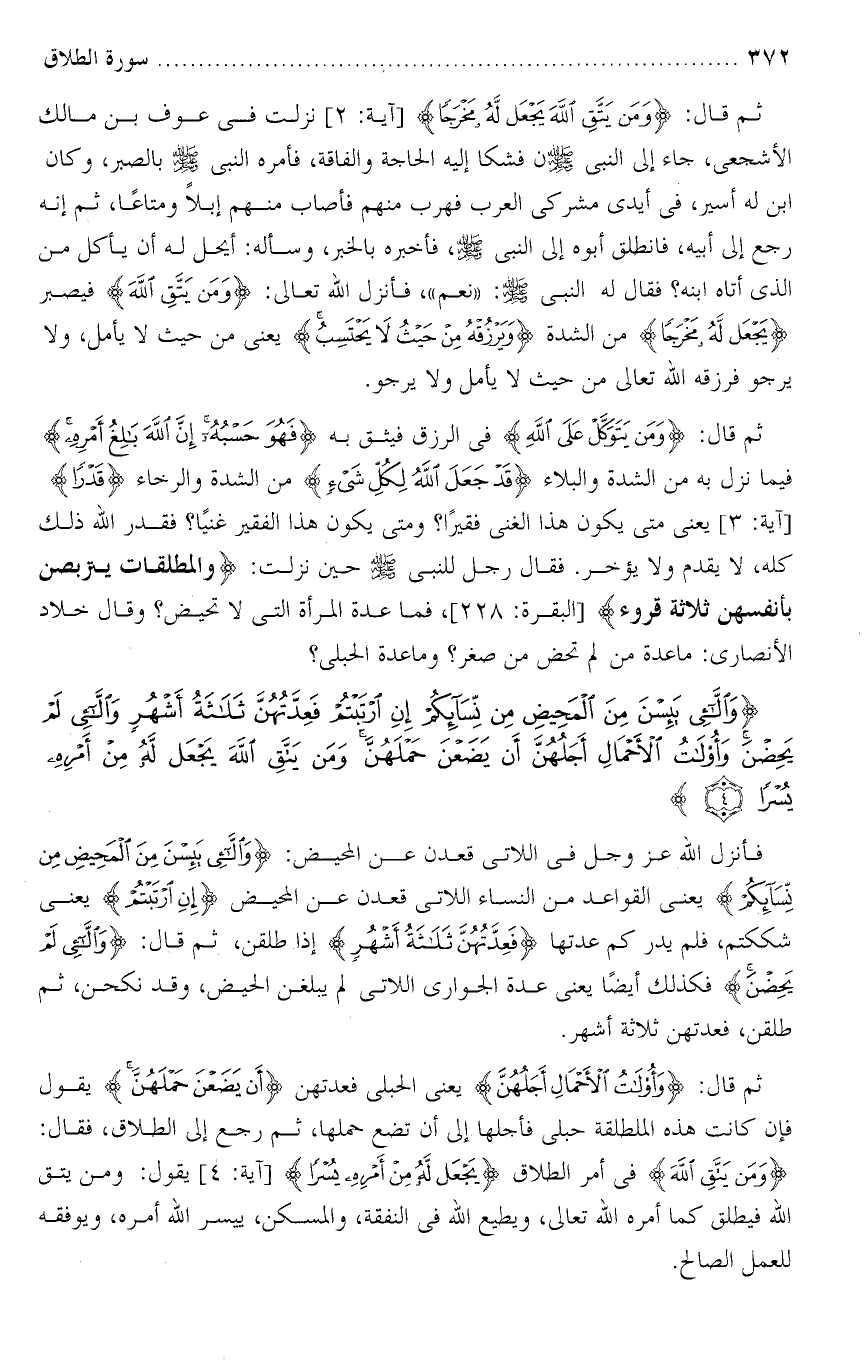 ٣٧٢ ........................................................................ سورة الطلاق
ثم قال: ﴿وَمَن يَتَّقِ ٱللَّهَ يَجْعَل لَّهُۥ مَخْرَجًا﴾ [آية: ٢] نزلت فى عوف بن مالك
الأشجعى، جاء إلى النبى ﷺن فشكا إليه الحاجة والفاقة، فأمره النبى ﷺ بالصبر، وكان
ابن له أسير، فى أيدى مشركى العرب فهرب منهم فأصاب منهم إبلاً ومتاعًا، ثم إنه
رجع إلى أبيه، فانطلق أبوه إلى النبى ﷺ، فأخبره بالخبر، وسأله: أيحل له أن يأكل من
الذى أتاه ابنه؟ فقال له النبى ﷺ: «نعم»، فأنزل الله تعالى: ﴿وَمَن يَتَّقِ ٱللَّهَ﴾ فيصبر
﴿يَجْعَل لَّهُۥ مَخْرَجًا﴾ من الشدة ﴿وَيَرْزُقْهُ مِنْ حَيْثُ لَا يَحْتَسِبُ ۚ﴾ يعنى من حيث لا يأمل، ولا
يرجو فرزقه الله تعالى من حيث لا يأمل ولا يرجو.
ثم قال: ﴿وَمَن يَتَوَكَّلْ عَلَى ٱللَّهِ﴾ فى الرزق فيثق به ﴿فَهُوَ حَسْبُهُۥٓ ۚ إِنَّ ٱللَّهَ بَٰلِغُ أَمْرِهِۦ ۚ﴾
فيما نزل به من الشدة والبلاء ﴿قَدْ جَعَلَ ٱللَّهُ لِكُلِّ شَىْءٍ﴾ من الشدة والرخاء ﴿قَدْرًا﴾
[آية: ٣] يعنى متى يكون هذا الغنى فقيرًا؟ ومتى يكون هذا الفقير غنيًا؟ فقدر الله ذلك
كله، لا يقدم ولا يؤخر. فقال رجل للنبى ﷺ حين نزلت: ﴿والمطلقات يتربصن
بأنفسهن ثلاثة قروء﴾ [البقرة: ٢٢٨]، فما عدة المرأة التى لا تحيض؟ وقال خلاد
الأنصارى: ماعدة من لم تحض من صغر؟ وماعدة الحبلى؟
﴿وَٱلَّٰٓـِٔى يَئِسْنَ مِنَ ٱلْمَحِيضِ مِن نِّسَآئِكُمْ إِنِ ٱرْتَبْتُمْ فَعِدَّتُهُنَّ ثَلَٰثَةُ أَشْهُرٍ وَٱلَّٰٓـِٔى لَمْ
يَحِضْنَ ۚ وَأُو۟لَٰتُ ٱلْأَحْمَالِ أَجَلُهُنَّ أَن يَضَعْنَ حَمْلَهُنَّ ۚ وَمَن يَتَّقِ ٱللَّهَ يَجْعَل لَّهُۥ مِنْ أَمْرِهِۦ
يُسْرًا ٤﴾
فأنزل الله عز وجل فى اللاتى قعدن عن المحيض: ﴿وَٱلَّٰٓـِٔى يَئِسْنَ مِنَ ٱلْمَحِيضِ مِن
نِّسَآئِكُمْ﴾ يعنى القواعد من النساء اللاتى قعدن عن المحيض ﴿إِنِ ٱرْتَبْتُمْ﴾ يعنى
شككتم، فلم يدر كم عدتها ﴿فَعِدَّتُهُنَّ ثَلَٰثَةُ أَشْهُرٍ﴾ إذا طلقن، ثم قال: ﴿وَٱلَّٰٓـِٔى لَمْ
يَحِضْنَ ۚ﴾ فكذلك أيضًا يعنى عدة الجوارى اللاتى لم يبلغن الحيض، وقد نكحن، ثم
طلقن، فعدتهن ثلاثة أشهر.
ثم قال: ﴿وَأُو۟لَٰتُ ٱلْأَحْمَالِ أَجَلُهُنَّ﴾ يعنى الحبلى فعدتهن ﴿أَن يَضَعْنَ حَمْلَهُنَّ ۚ﴾ يقول
فإن كانت هذه الملطلقة حبلى فأجلها إلى أن تضع حملها، ثم رجع إلى الطلاق، فقال:
﴿وَمَن يَتَّقِ ٱللَّهَ﴾ فى أمر الطلاق ﴿يَجْعَل لَّهُۥ مِنْ أَمْرِهِۦ يُسْرًا﴾ [آية: ٤] يقول: ومن يتق
الله فيطلق كما أمره الله تعالى، ويطيع الله فى النفقة، والمسكن، ييسر الله أمره، ويوفقه
للعمل الصالح.